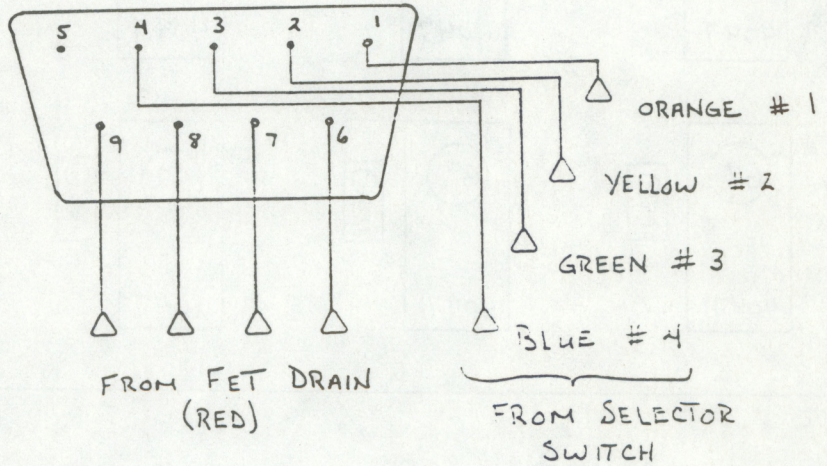 5 4 3 2 1
9 8 7 6
ORANGE # 1
YELLOW # 2
GREEN # 3
BLUE # 4
FROM FET DRAIN
(RED)
FROM SELECTOR
SWITCH